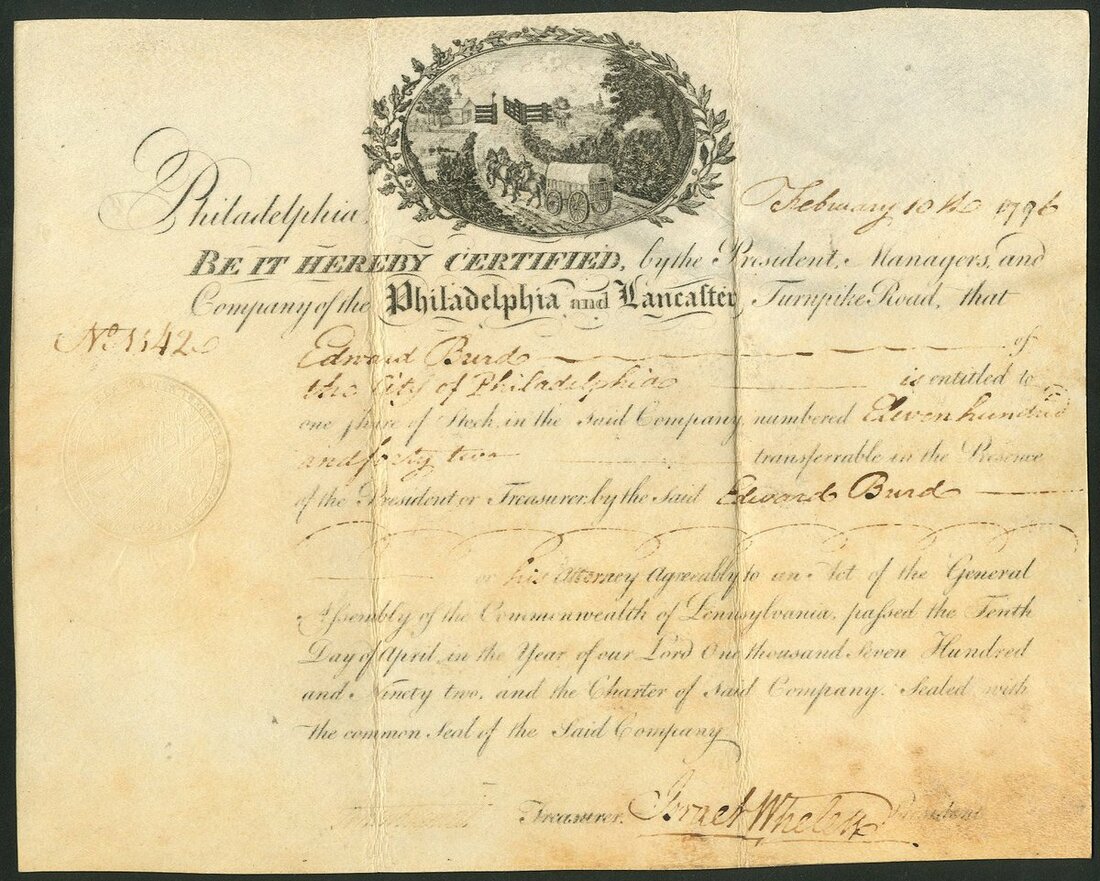 Philadelphia February 10th 1796
BE IT HEREBY CERTIFIED, by the President, Managers, and
Company of the Philadelphia and Lancaster Turnpike Road, that
No. 1142
Edward Burd of
the City of Philadelphia is entitled to
one share of Stock in the said Company, numbered Elevenhundred
and forty two transferrable in the Presence
of the President or Treasurer by the said Edward Burd
or his Attorney Agreeably to an Act of the General
Assembly of the Commonwealth of Pennsylvania, passed the Tenth
Day of April, in the Year of our Lord One thousand Seven Hundred
and Ninety two, and the Charter of said Company. Sealed with
the common Seal of the Said Company
Treasurer. Israel Whelen President